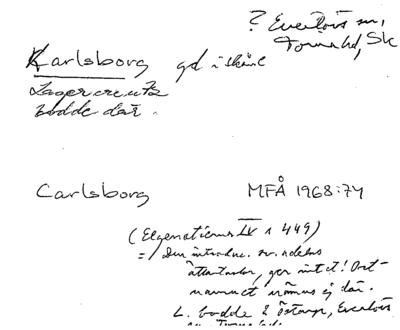 ? Everlövs sn,
Torna hd, Sk
Karlsborg gd i Skåne
Lagercreutz
bodde där.
Carlsborg MFÅ 1968:74
(Elgenstierna IV s 449)
= Den introduc. sv. adelns
ättartavlor, ger intet! Ort-
namnet nämns ej där.
L. bodde i Östarp, Everlövs
sn, Torna hd.